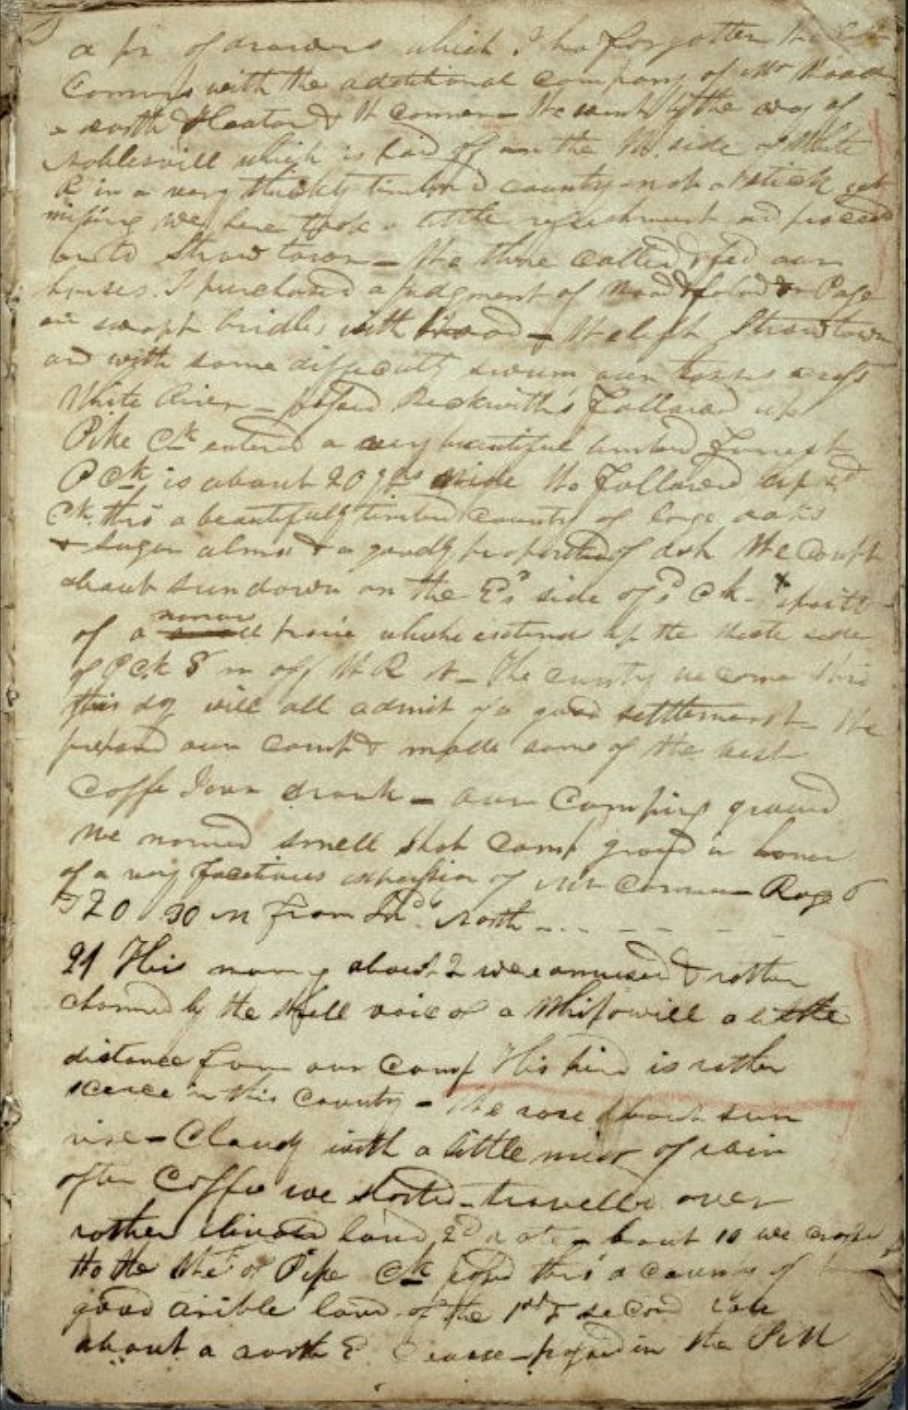 a pr of drawers which I had forgotten the
Conners with the additional company of Mr
north Heaton & W conner We went by the way of
Noblesvill which is laid of on the W. side of White
R in a very thickly timbred county not a stick yet
missing we here took a little refreshment and proceed
on to Straw town – We there called & fed our
horses. I purchased a judgment of on Page
swapt bridles with – We left Straw town
and with some difficulty swum our horses across
White River – passed Beckwith's followed up
Pipe Ck entered a very beautiful timbred Forrest
P Ck is about 20 yds wide We followed up sd
Ck. thro a beautifully timbred county of large oaks
& sugar alms & a goodly proportion of ash We campt
about sundown on the Es side of P Ck. opposite
of a narrow prairie which extends up the side
of P Ck 8 m off W R The county we come thro
this day will all admit of a good settlement – We
prepared our camp & made some of the best
Coffe I ever drank – our Camping ground
we named smell shot Camp ground in honor
of a very facetious expression of Mr Conner – Rage 6
T 20 30 m from North – – – –
21 This morng about 2 we amused & rather
charmed by the shrill voice of a Whipowill a little
distance from our Camp This bird is rather
scarce in this County – We rose about sun
rise – Cloudy with a little mist of rain
after Coffee we started – travelled over
rather land, 2d rate – about 10 we
to the of Pipe Ck thro a county of
good arible land of the 1st & second rate
about a north E. Course – in the